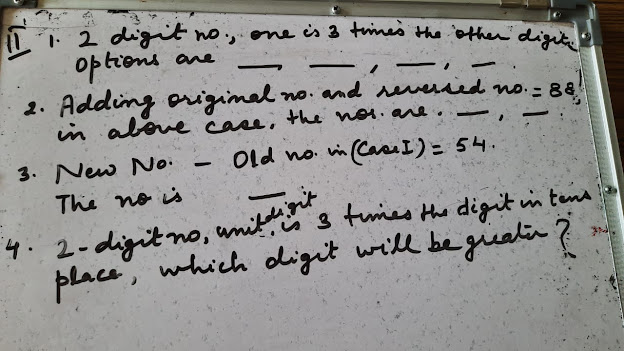 II 1. 2 digit no., one is 3 times the other digit.
Options are __, __, __, __
2. Adding original no. and reversed no. = 88,
in above case, the nos. are. __, __.
3. New No. - Old no. in (Case I) = 54.
The no is __
4. 2-digit no, unit digit is 3 times the digit in tens
place, which digit will be greater?